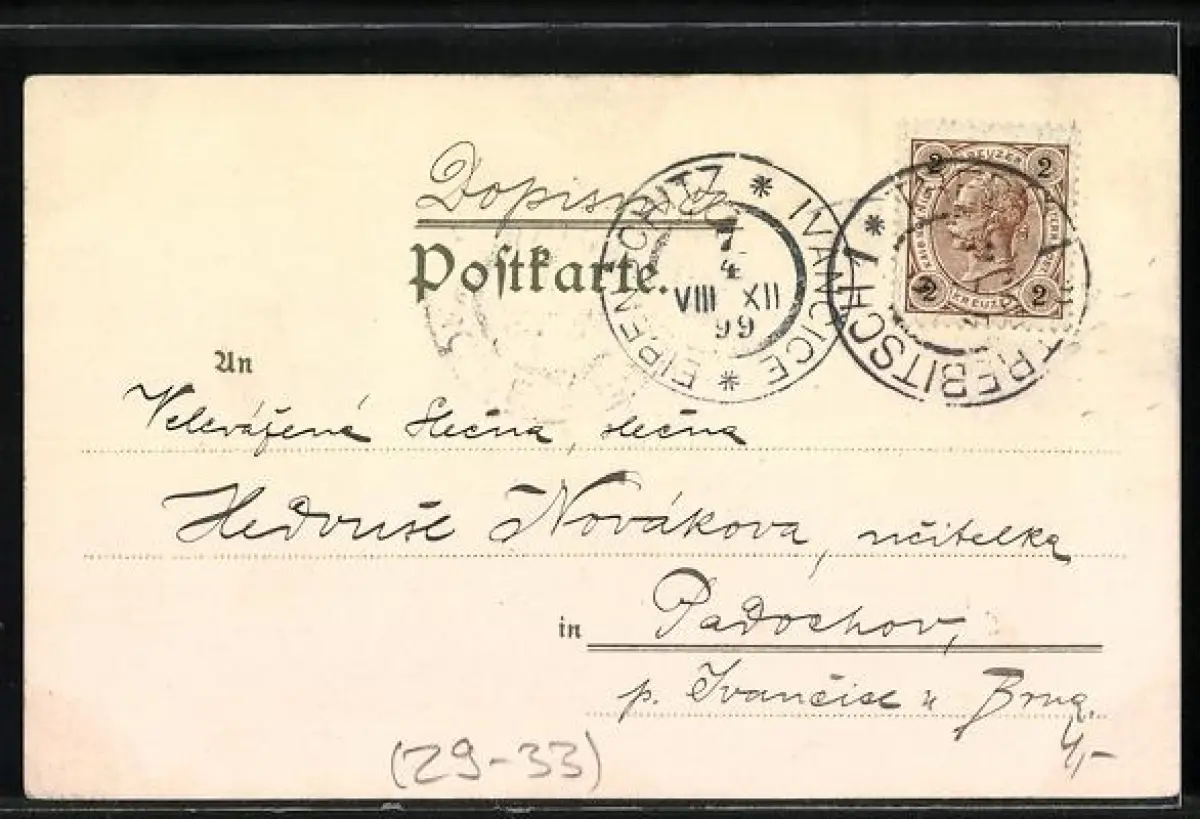 Dopisnice
Postkarte.
EIBENSCHITZ * IVANČICE *
7
4
VIII XII
99
TREBITSCH 1
2 KREUZER 2
2 KREUZER 2
An
Velevážená Slečna, slečna
Hedvuše Novákova, učitelka
in Padochov,
p. Ivančice u Brna.
4,-
(29-33)